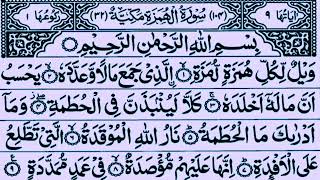 اٰيَاتُهَا ٩ (١٠٤) سُوْرَةُ الْهُمَزَةِ مَكِّيَّةٌ (٣٢) رُكُوْعُهَا ١
بِسْمِ اللّٰهِ الرَّحْمٰنِ الرَّحِيْمِ
وَيْلٌ لِّكُلِّ هُمَزَةٍ لُّمَزَةِ ۙ﴿١﴾ الَّذِيْ جَمَعَ مَالًا وَّعَدَّدَهٗ ۙ﴿٢﴾ يَحْسَبُ
اَنَّ مَالَهٗۤ اَخْلَدَهٗ ۚ﴿٣﴾ كَلَّا لَيُنْۢبَذَنَّ فِي الْحُطَمَةِ ۖ﴿٤﴾ وَمَاۤ
اَدْرٰىكَ مَا الْحُطَمَةُ ؕ﴿٥﴾ نَارُ اللّٰهِ الْمُوْقَدَةُ ۙ﴿٦﴾ الَّتِيْ تَطَّلِعُ
عَلَى الْاَفْـِٕدَةِ ؕ﴿٧﴾ اِنَّهَا عَلَيْهِمْ مُّؤْصَدَةٌ ۙ﴿٨﴾ فِيْ عَمَدٍ مُّمَدَّدَةٍ ﴿٩﴾